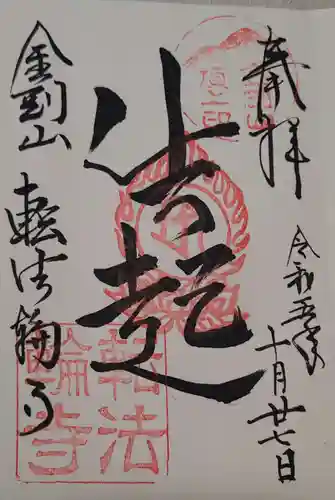 奉拝
令和五年
十月廿七日
法起
金剛山
転法輪寺
転法
輪寺